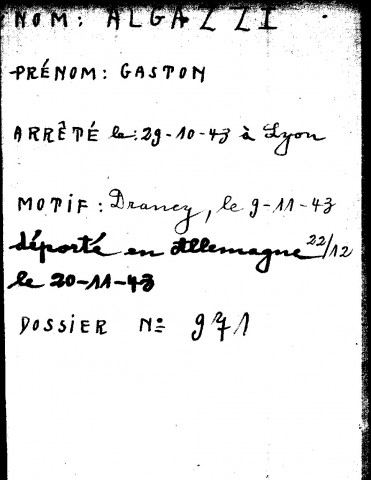 NOM: ALGAZZI
PRÉNOM: GASTON
ARRÊTÉ le: 29-10-43 à Lyon
MOTIF: Drancy, le 9-11-43
déporté en Allemagne 22/12
le 20-11-43
DOSSIER No 971